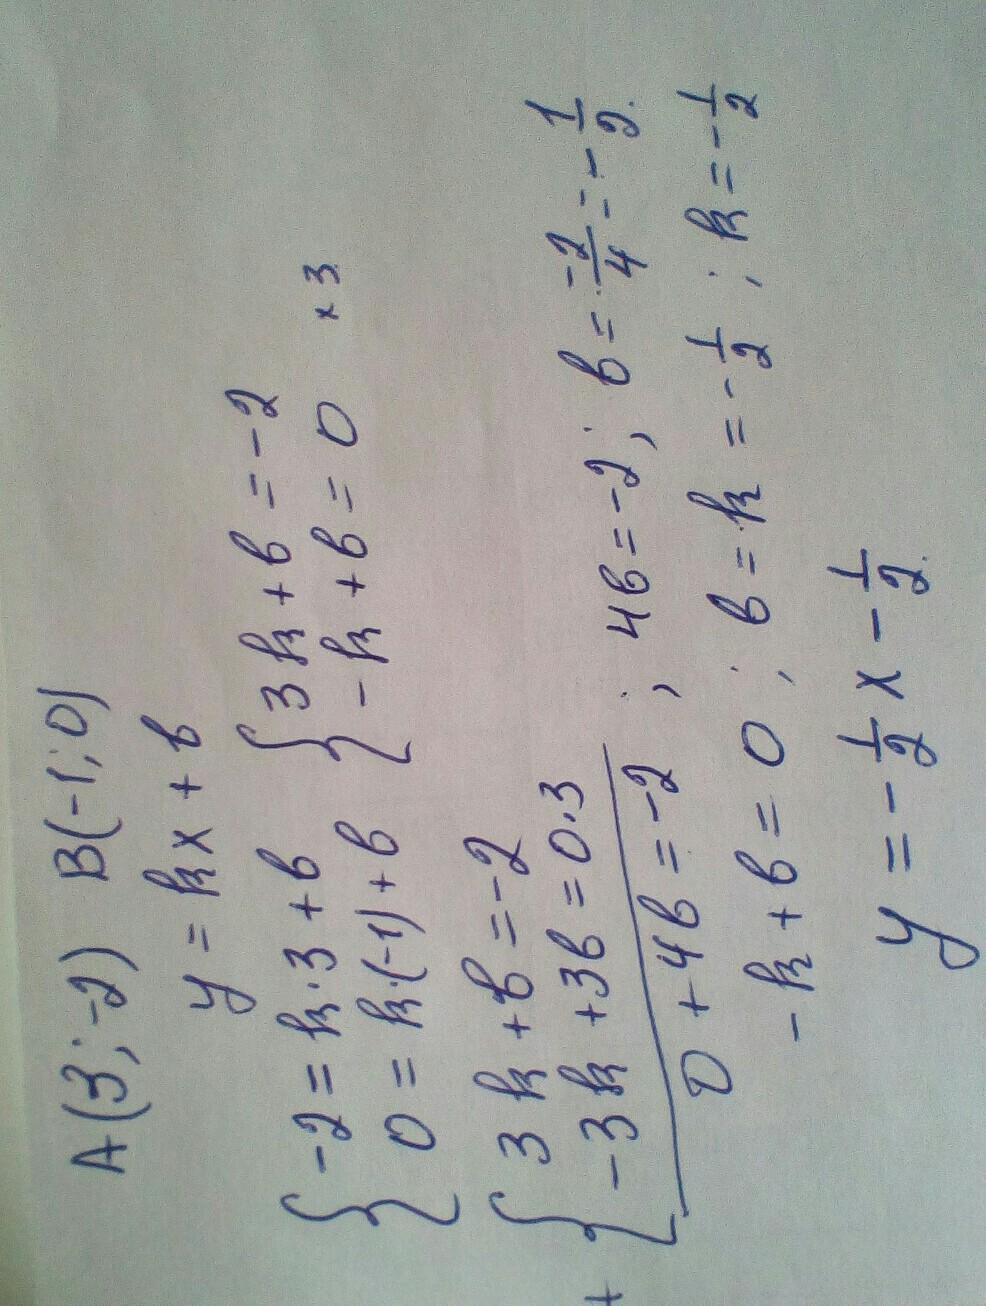 A(3;-2) B(-1;0)
y = kx + b
{ -2 = k·3 + b { 3k + b = -2
0 = k·(-1) + b -k + b = 0 ×3
+ { 3k + b = -2
-3k + 3b = 0·3
0 + 4b = -2 ; 4b = -2 ; b = -2/4 = -1/2
-k + b = 0 ; b = k = -1/2 ; k = -1/2
y = -1/2 x - 1/2